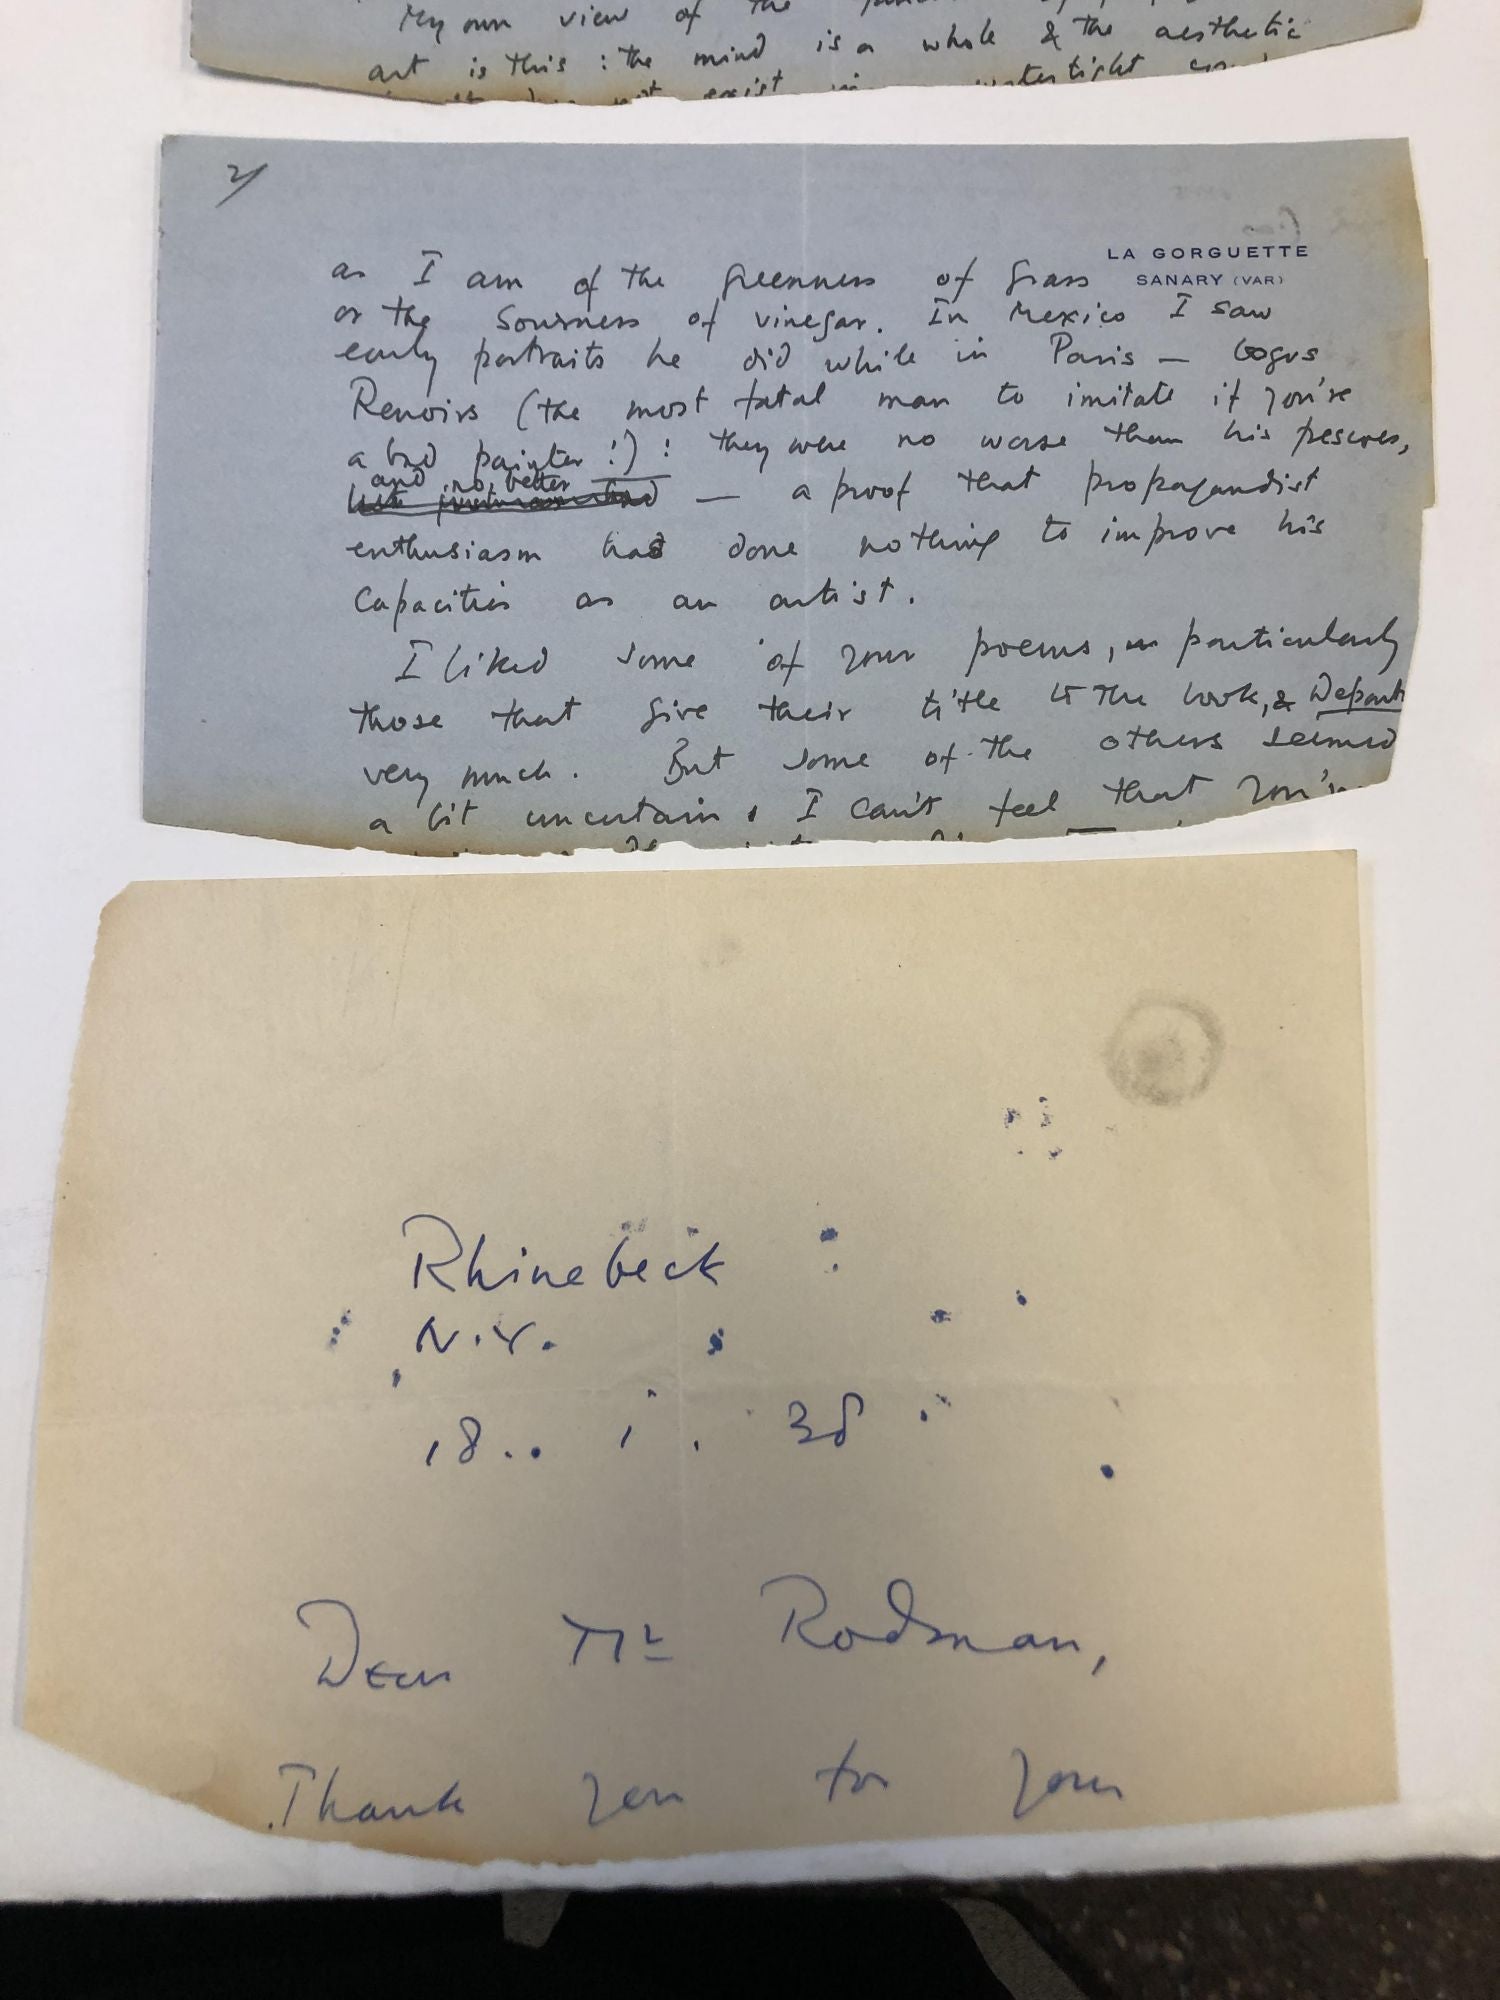 My own view of the
art is this : the mind is a whole & the aesthetic
not exist in watertight
2/
LA GORGUETTE
SANARY (VAR)
as I am of the greenness of grass
or the sourness of vinegar. In Mexico I saw
early portraits he did while in Paris — bogus
Renoirs (the most fatal man to imitate if you're
a bad painter!) : they were no worse than his frescoes,
and no better — a proof that propagandist
enthusiasm has done nothing to improve his
capacities as an artist.
I liked some of your poems, in particularly
those that give their title to the book, & Depart
very much. But some of the others seemed
a bit uncertain. I can't feel that
Rhinebeck
N.Y.
18.. 1 . 38
Dear Mr Rodman,
Thank you for your